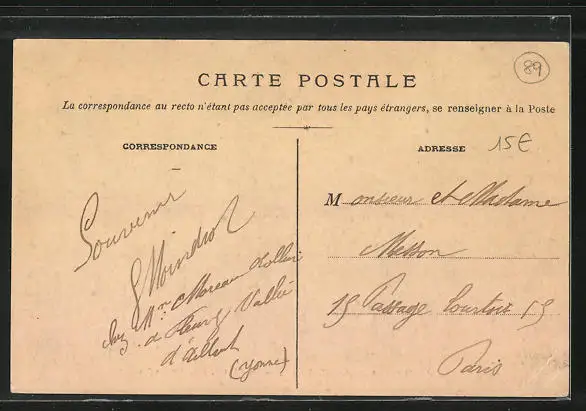 89
CARTE POSTALE
La correspondance au recto n'étant pas acceptée par tous les pays étrangers, se renseigner à la Poste
CORRESPONDANCE
Souvenir
chez Mr. Moreau
de Fleury Vallée
d'aillant
(Yonne)
ADRESSE
15€
Monsieur et Madame
Messon
15 Passage Courtois 15
Paris